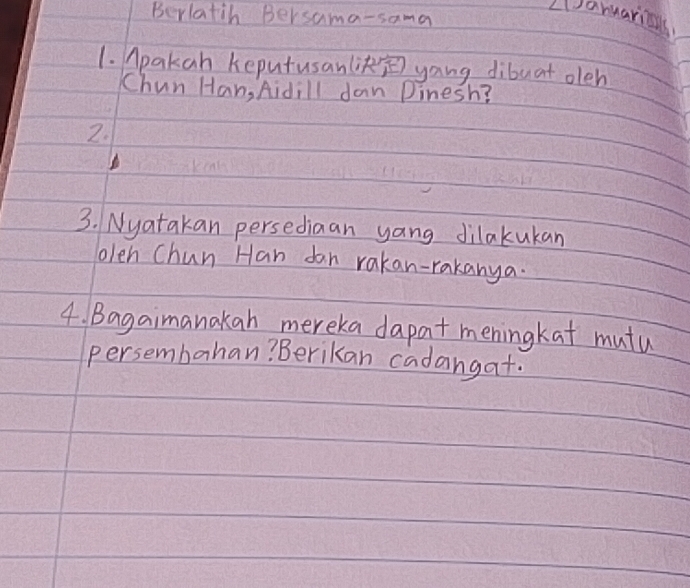 Berlatih Bersama-sama
1. Apakah keputusan(决定) yang dibuat oleh
Chun Han, Aidill dan Dinesh?
2.
3. Nyatakan persediaan yang dilakukan
oleh Chun Han dan rakan-rakanya.
4. Bagaimanakah mereka dapat meningkat mutu
persembahan? Berikan cadangat.